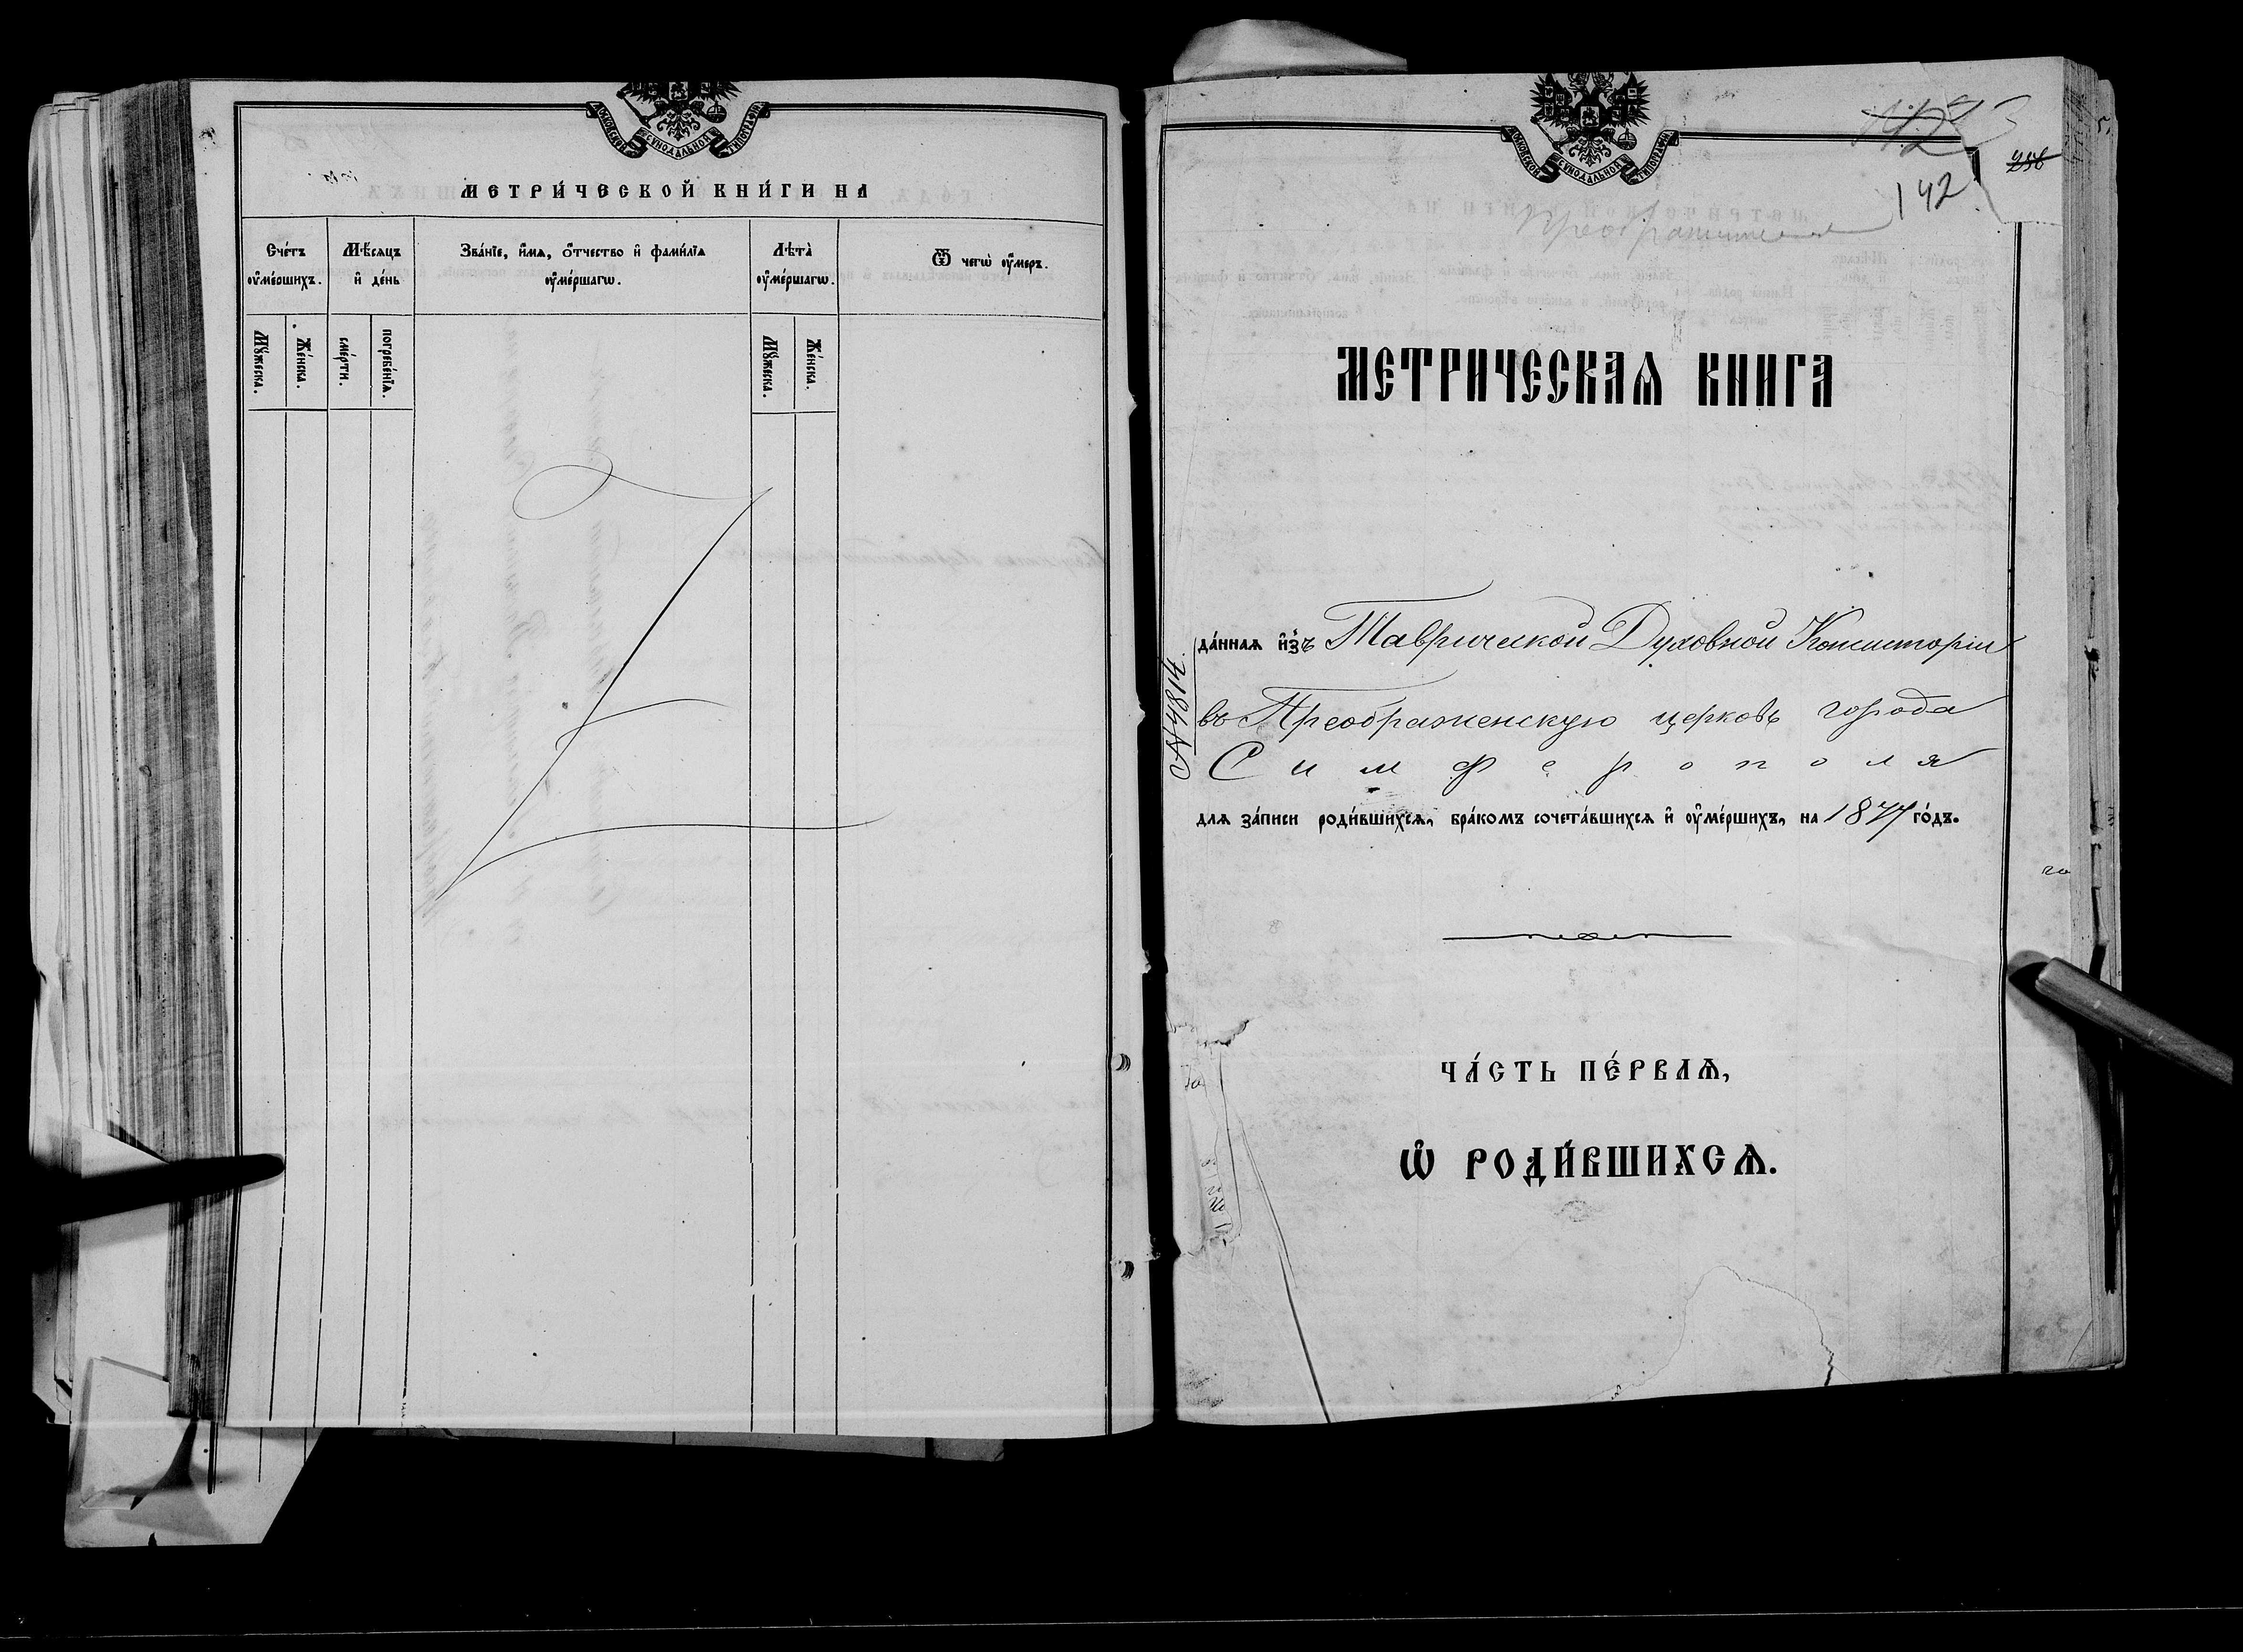 МОСКОВСКОЙ СѴНОДАЛЬНОЙ ТИПОГРАФІИ
МЕТРИ́ЧЕСКОЙ КНИ́ГИ НА
Сче́тъ ᲂу҆ме́ршихъ.
Мѣ́сяцъ и҆ де́нь
Зва́нїе, и҆́мѧ, ѻ҆́тчество и҆ фами́лїѧ ᲂу҆ме́ршагѡ.
Лѣта̀ ᲂу҆ме́ршагѡ.
Ѿ чегѡ̀ ᲂу҆́меръ.
Мꙋ́жеска.
Же́нска.
сме́рти.
погребе́нїѧ.
Мꙋ́жеска.
Же́нска.
МОСКОВСКОЙ СѴНОДАЛЬНОЙ ТИПОГРАФІИ
142
МЕТРИЧЕСКАѦ КНИГА
да́ннаѧ и҆зъ Таврической Духовной Консисторіи
въ Преображенскую церковь города
Симферополя
для за́писи роди́вшихсѧ, бра́комъ сочета́вшихсѧ и҆ ᲂу҆ме́ршихъ, на 1877 го́дъ.
№ 4814.
ЧА́СТЬ ПЕ́РВАѦ,
Ѡ҆ РОДИ́ВШИХСѦ.